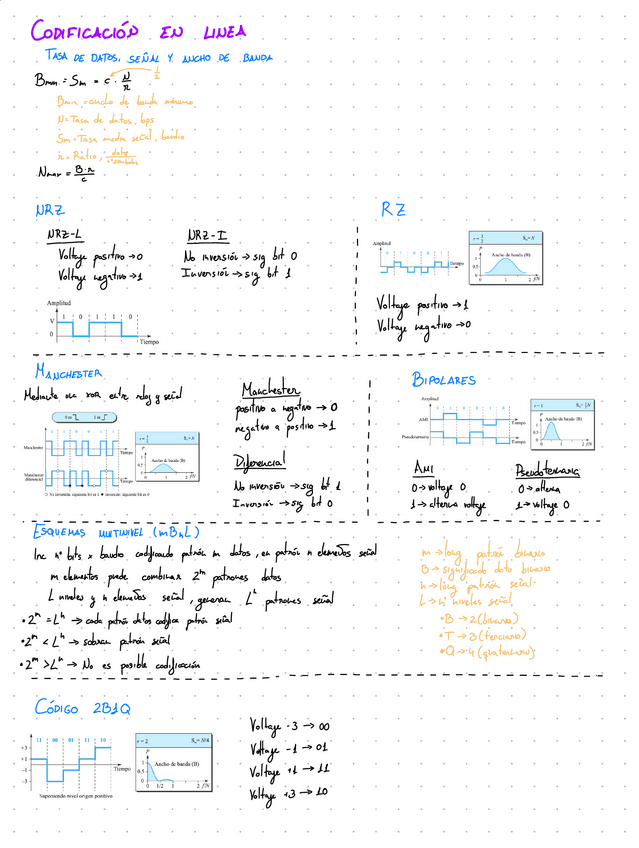 CODIFICACIÓN EN LINEA
TASA DE DATOS, SEÑAL Y ANCHO DE BANDA
Bmin = Sm = c · N/r
1/2
Bmin = ancho de banda mínimo
N = Tasa de datos, bps
Sm = Tasa media señal, baudio
r = Ratio,
Nmax = B·r/c
NRZ
NRZ-L
Voltaje positivo → 0
Voltaje negativo → 1
NRZ-I
No inversión → sig bit 0
Inversión → sig bit 1
Amplitud
V
0
1 0 1 1 0
Tiempo
RZ
Amplitud
Tiempo
r = 1/2
Sm = N
P
Ancho de banda (B)
1
0.5
0
0 1 2 f/N
Voltaje positivo → 1
Voltaje negativo → 0
MANCHESTER
Mediante una xor entre reloj y señal
0 es
1 es
Manchester
Tiempo
Manchester diferencial
Tiempo
No inversión: siguiente bit es 1
inversión: siguiente bit es 0
r = 1/2
Sm = N
P
Ancho de banda (B)
1
0.5
0
0 1 2 f/N
Manchester
positivo a negativo → 0
negativo a positivo → 1
Diferencial
No inversión → sig bit 1
Inversión → sig bit 0
BIPOLARES
Amplitud
AMI
Tiempo
Pseudoternaria
Tiempo
r = 1
Sm = 1/2 N
P
Ancho de banda (B)
1
0.5
0
0 1 2 f/N
AMI
0 → voltage 0
1 → alterna voltage
Pseudoternaria
0 → alterna
1 → voltage 0
ESQUEMAS MULTINIVEL (mBnL)
Inc nº bits x baudio codificando patrón m datos, en patrón n elementos señal
m elementos puede combinar 2^m patrones datos
L niveles y n elementos señal, generan L^n patrones señal
• 2^m = L^n → cada patrón datos codifica patrón señal
• 2^m < L^n → sobran patrón señal
• 2^m > L^n → No es posible codificación
m → long patrón binario
B → significado dato binario
n → long patrón señal
L → nº niveles señal
• B → 2 (binario)
• T → 3 (terciario)
• Q → 4 (quaternario)
CÓDIGO 2B1Q
11 00 01 11 10
+3
+1
-1
-3
Tiempo
Suponiendo nivel origen positivo
r = 2
Sm = N/4
P
Ancho de banda (B)
1
0.5
0
0 1/2 1 2 f/N
Voltage -3 → 00
Voltage -1 → 01
Voltage +1 → 11
Voltage +3 → 10